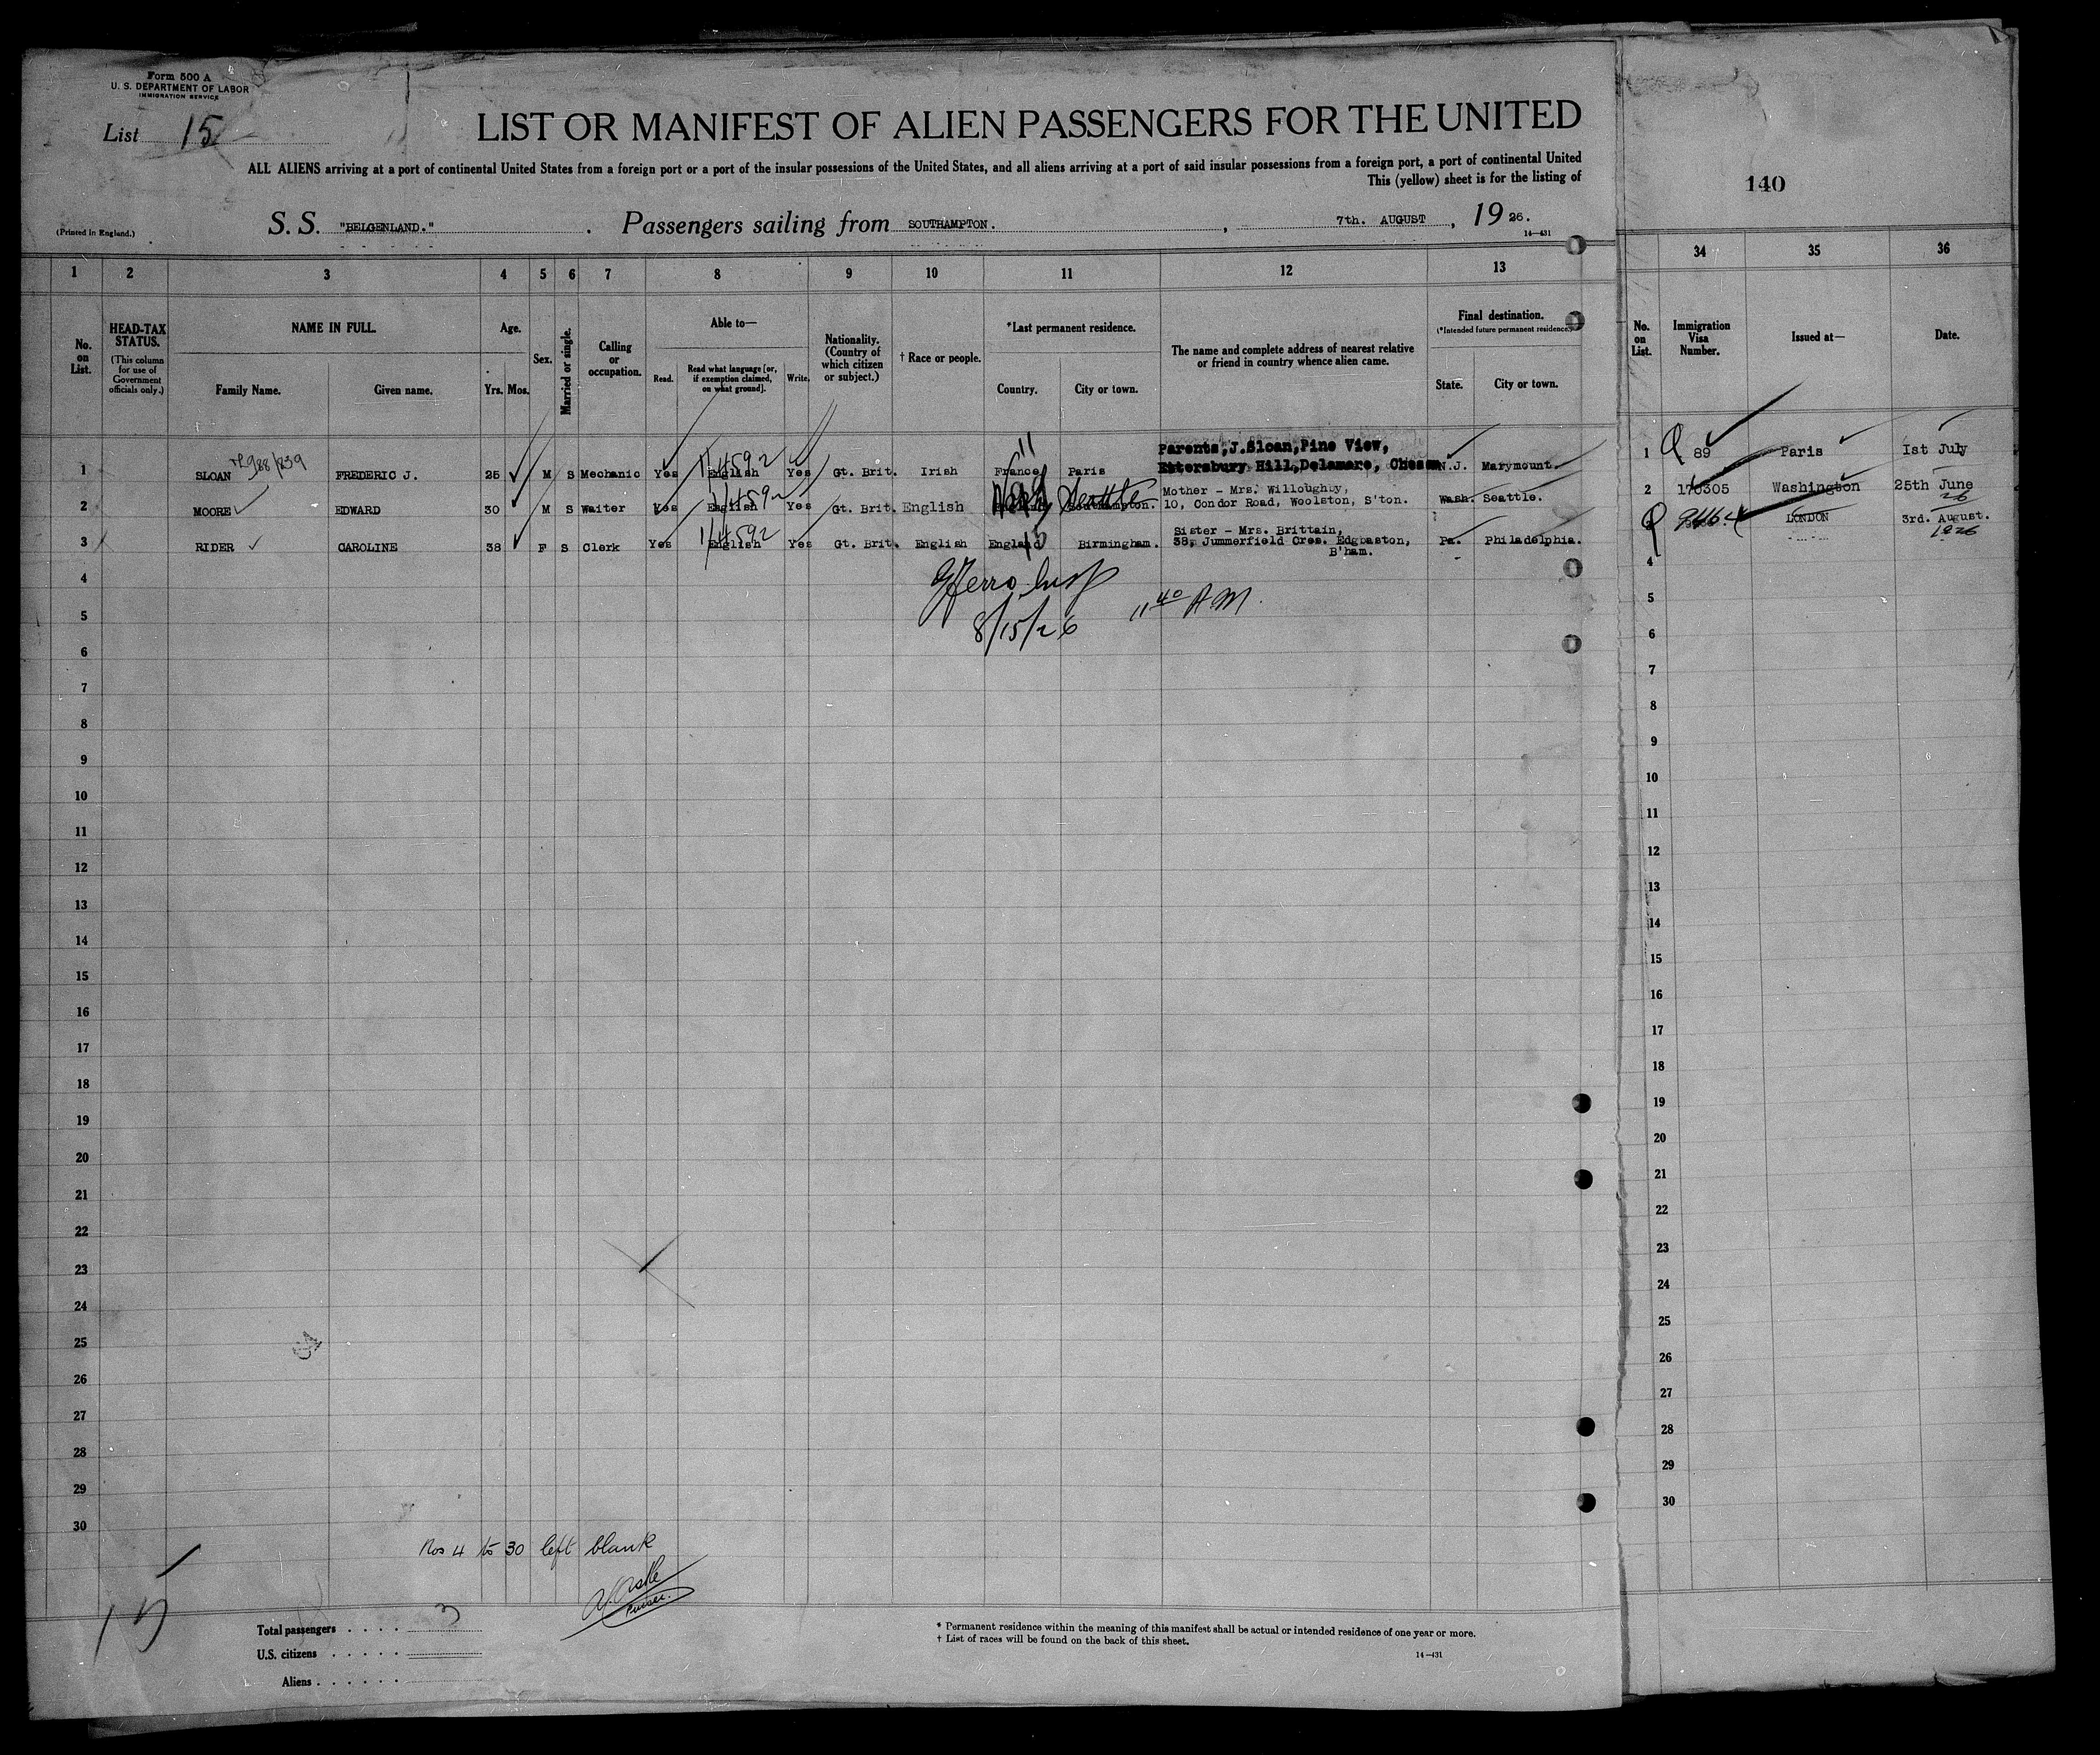 Form 500 A
U. S. DEPARTMENT OF LABOR
IMMIGRATION SERVICE
List 15
LIST OR MANIFEST OF ALIEN PASSENGERS FOR THE UNITED
ALL ALIENS arriving at a port of continental United States from a foreign port or a port of the insular possessions of the United States, and all aliens arriving at a port of said insular possessions from a foreign port, a port of continental United
This (yellow) sheet is for the listing of
140
(Printed in England.)
S. S. "BELGENLAND." . Passengers sailing from SOUTHAMPTON. , 7th. AUGUST , 19 26.
14—431
1 2 3 4 5 6 7 8 9 10 11 12 13 34 35 36
No. on List.
HEAD-TAX STATUS.
(This column for use of Government officials only.)
NAME IN FULL.
Family Name. Given name.
Age.
Yrs. Mos.
Sex.
Married or single.
Calling or occupation.
Able to—
Read. Read what language [or, if exemption claimed, on what ground]. Write.
Nationality. (Country of which citizen or subject.)
† Race or people.
*Last permanent residence.
Country. City or town.
The name and complete address of nearest relative or friend in country whence alien came.
Final destination.
(*Intended future permanent residence.)
State. City or town.
No. on List.
Immigration Visa Number.
Issued at—
Date.
988/839
11/4592
Parents, J.Sloan, Pine View,
1 SLOAN FREDERIC J. 25 M S Mechanic Yes English Yes Gt. Brit. Irish France Paris Hill, Delamare, N.J. Marymount. 1 89 Paris 1st July
11/4592
Seattle
Mother - Mrs. Willoughby,
2 MOORE EDWARD 30 M S Waiter Yes English Yes Gt. Brit. English Southampton. 10, Condor Road, Woolston, S'ton. Wash. Seattle. 2 170305 Washington 25th June
26
11/4592
Sister - Mrs. Brittain,
3 RIDER CAROLINE 38 F S Clerk Yes English Yes Gt. Brit. English England Birmingham. 38, Jummerfield Cres. Edgbaston, Pa. Philadelphia. LONDON 3rd. August.
B'ham.
1926
4 4
5 5
8/15/26 11 40 AM.
6 6
7 7
8 8
9 9
10 10
11 11
12 12
13 13
14 14
15 15
16 16
17 17
18 18
19 19
20 20
21 21
22 22
23 23
24 24
25 25
26 26
27 27
28 28
29 29
30 30
Nos 4 to 30 left blank
Purser.
15
Total passengers . . . . 3
U.S. citizens . . . . .
Aliens . . . . . .
* Permanent residence within the meaning of this manifest shall be actual or intended residence of one year or more.
† List of races will be found on the back of this sheet.
14—431